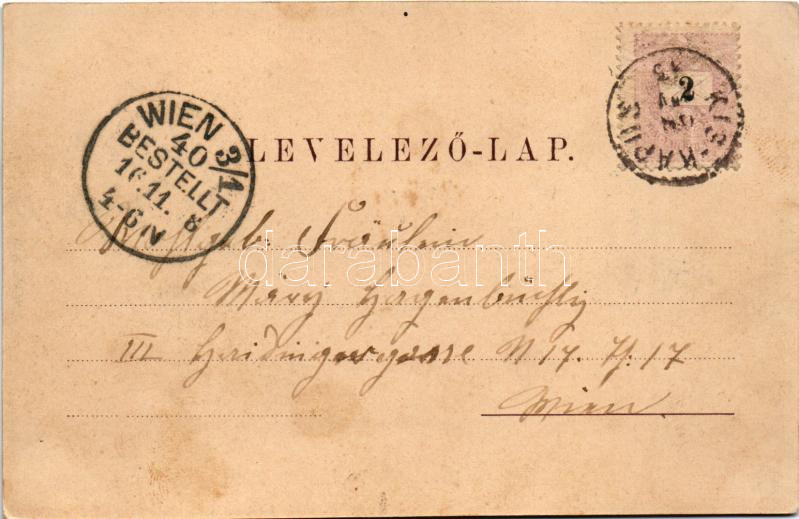 WIEN 3/1
40
BESTELLT
16.11. 8
4-6 N
KIS-KAPUS
2
LEVELEZŐ-LAP.
darabanth
Fräulein
Mary Hagenbüchly
III Haidingergasse N 17. T. 17
Wien.